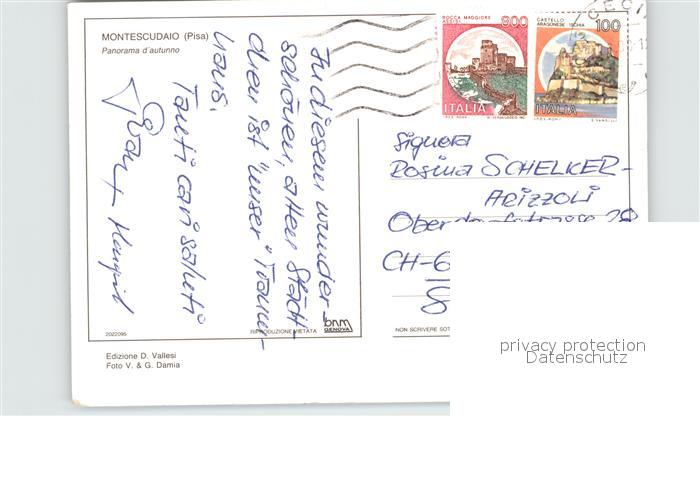 MONTESCUDAIO (Pisa)
Panorama d'autunno
In diesem wunder-
schönen, alten Städt-
chen ist "unser" Traum-
haus.
Tanti cari saluti
ROCCA MAGGIORE
ASSISI
800
ITALIA
CASTELLO
ARAGONESE ISCHIA
100
ITALIA
CECI
Signora
Rosina SCHELKER-
ARIZZOLI
CH-6
2022095
RIPRODUZIONE VIETATA
bnm
GENOVA
NON SCRIVERE SOT
Edizione D. Vallesi
Foto V. & G. Damia
privacy protection
Datenschutz